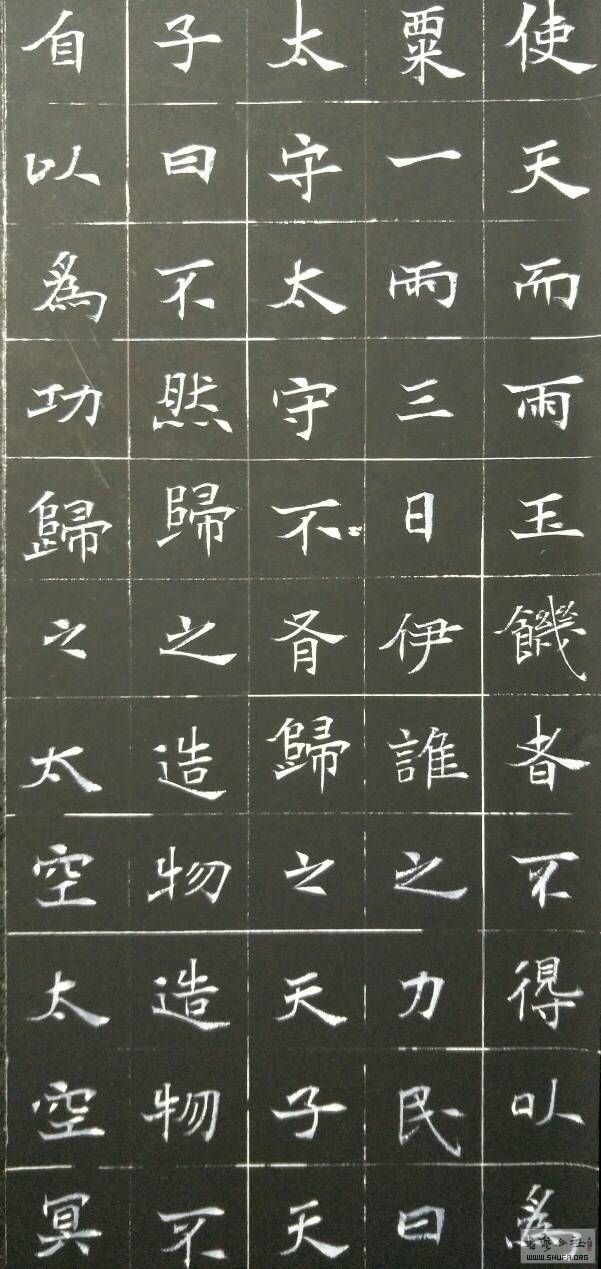 使天而雨玉饑者不得以爲
粟一雨三日伊誰之力民曰
太守太守不肯歸之天子天
子曰不然歸之造物造物不
自以爲功歸之太空太空冥
WWW.SHUFA.ORG